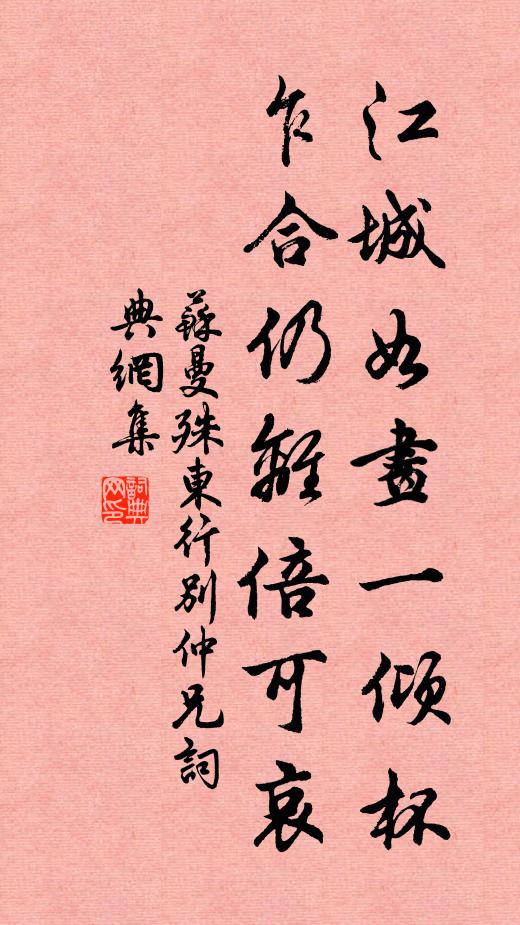 江城如畫一傾杯
乍合仍離倍可哀
蘇曼殊東行別仲兄詞
典網集
詞典
网印